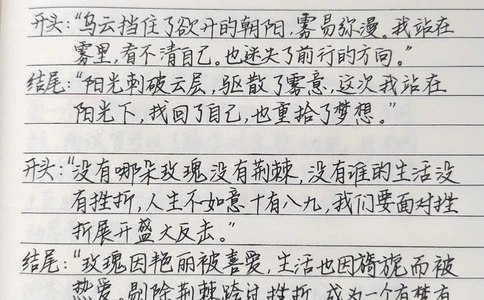 开头:“乌云挡住了欲开的朝阳,雾易弥漫。我站在
雾里,看不清自己。也迷失了前行的方向。”
结尾:“阳光刺破云层,驱散了雾意,这次我站在
阳光下,我回了自己,也重拾了梦想。”
开头:“没有哪朵玫瑰没有荆棘,没有谁的生活没
有挫折,人生不如意十有八九,我们要面对挫
折展开盛大反击。”
结尾:“玫瑰因艳丽被喜爱,生活也因旖旎而被
热爱。剔除荆棘跨过挫折,成为一个有梦有